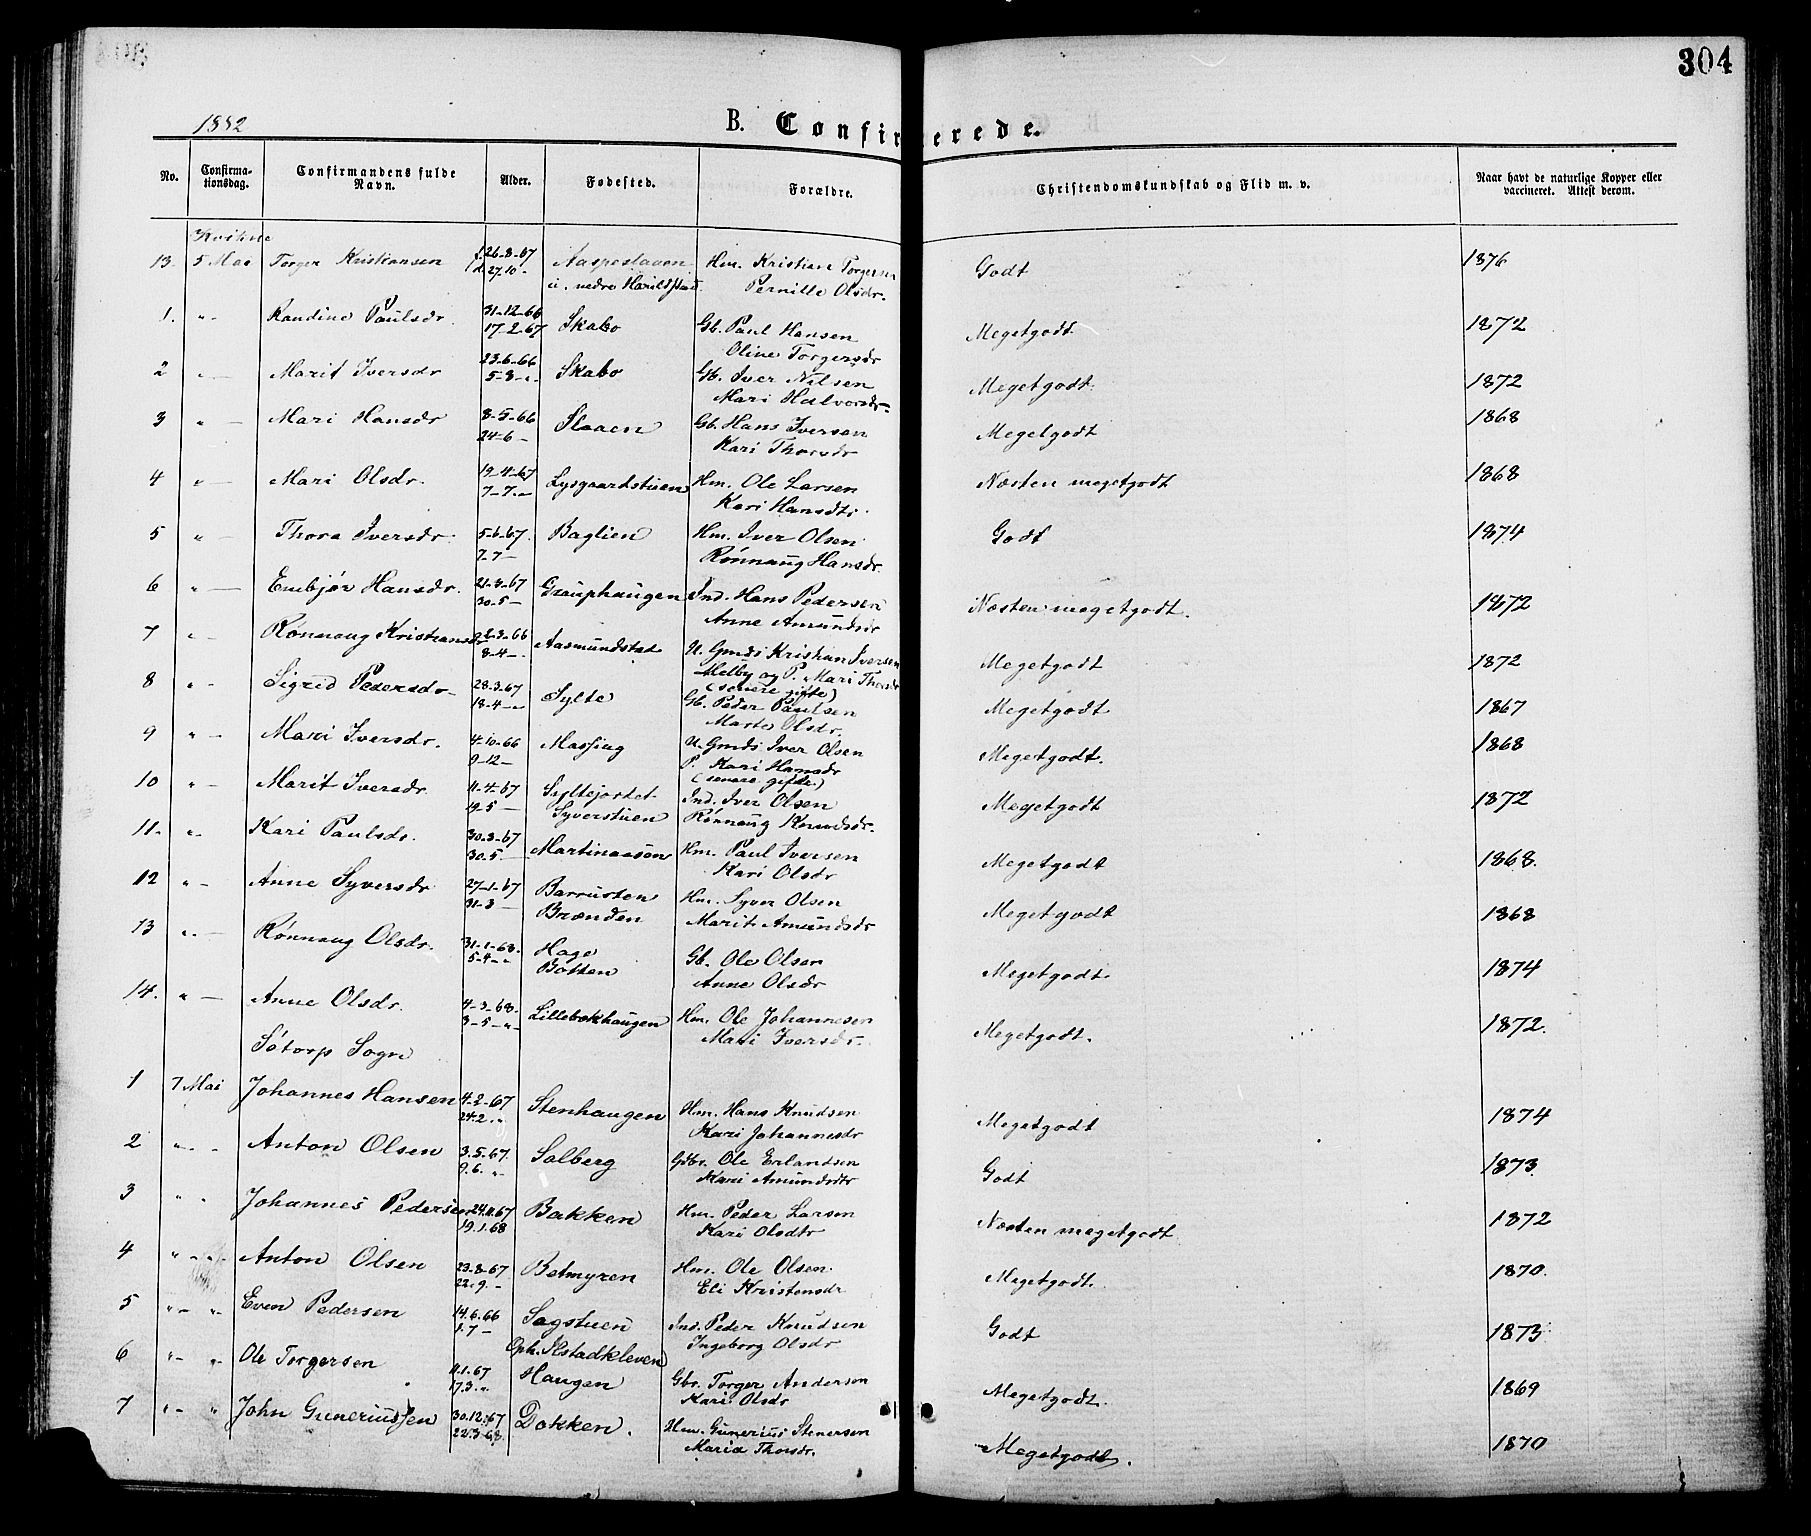 304
1882
B. Confirmerede.
No. Confirma-tionsdag. Confirmandens fulde Navn. Alder. Fødested. Forældre. Christendomskundskab og Flid m. v. Naar havt de naturlige Kopper eller vaccineret. Attest derom.
Kvikne
13. 5 Mai Torger Kristiansen f. 26-8-67 Aaspeslaaen Hm. Kristian Torgersen Godt 1876
d. 27.10 - u. nedre Harildstad Pernille Olsdr.
1. " - Randine Paulsdr 31-12-66 Skabo Gb. Paul Hansen Megetgodt 1872
17-2-67 Oline Torgersdr
2 " - Marit Iversdr 23-6-66 Skabo Gb. Iver Nilsen Megetgodt. 1872
5-8-" Mari Halvorsdr
3 " - Mari Hansdr 8-5-66 Slaaen Gb. Hans Iversen Megetgodt 1868
24-6- Kari Thorsdr
4 " - Mari Olsdr. 19-4-67 Lysgaardstuen Hm. Ole Larsen Næsten megetgodt 1868
7-7-" Kari Hansdtr.
5 " - Thora Iversdr. 5-6-67. Baglien Hm. Iver Olsen Godt 1874
7-7- Rønnaug Hansdr.
6 " - Embjør Hansdr. 21-3-67 Grauphaugen Ind. Hans Pedersen Næsten megetgodt. 1872
30-5- Anne Amundsdr
7 " - Rønnaug Kristiansdr 2-3-66 Aasmundstad U. Gmds Kristian Iversen Megetgodt 1872
8-4-. Melby og P. Mari Thorsdr
(senere gifte)
8 " - Sigrid Pedersdr 28-3-67 Sylte Gb. Peder Paulsen Megetgodt 1867
18-4-" Marte Olsdr.
9 " - Mari Iversdr. 4-10-66 Massing U. Gmds Iver Olsen Megetgodt. 1868
9-12- P. Kari Hansdr
(senere gifte.)
10 " - Marit Iversdr 11-4-67 Syltejordet Ind. Iver Olsen Megetgodt 1872
19-5- Syverstuen Rønnaug Knudsdr.
11- " - Kari Paulsdr. 30-3-67 Martinaasen Hm. Paul Iversen Megetgodt 1868.
30.5- Kari Olsdr
12 " - Anne Syversdr 27-1-67 Barrusten Hm. Syver Olsen Megetgodt 1868
31-3- Brænden Marit Amundsdr
13 " - Rønnaug Olsdr. 31-1-68. Hage Gb. Ole Olsen Megetgodt. 1874
5-4-" Botten Anne Olsdr
14. " - Anne Olsdr. 4-3-68. Lillebækhaugen Hm. Ole Johannesen Megetgodt. 1872.
3-5-"- Mari Iversdr.
Sötorp Sogn
1 7 Mai Johannes Hansen 4-2-67 Stenhaugen Hm. Hans Knudsen Megetgodt 1874
24.2." Kari Johannesdr
2 " - Anton Olsen 3.5.67. Solberg Gbr. Ole Erlandsen Godt 1873
9.6. " Kari Amundsdtr
3 " " Johannes Pedersen 24.11.67 Bakken Hm. Peder Larsen Næsten megetgodt 1872
19.1.68 Kari Olsdtr
4 " - " Anton Olsen 23.8.67 Betmyren Hm. Ole Olsen Megetgodt. 1870.
22.9.- Eli Kristensdr
5 " - " Even Pedersen 14.6.66 Sagstuen Ind. Peder Knudsen Godt 1873
1.7- Oph. Ilstadkleven Ingeborg Olsdr
6 " - " Ole Torgersen 11.1.67 Haugen Gbr. Torger Andersen Megetgodt. 1869
17.3." Kari Olsdr
7 " - " John Guneriussen 30.12.67 Dokken. Hm. Gunerius Stenersen Megetgodt. 1870
22.3.68 Maria Thorsdr.